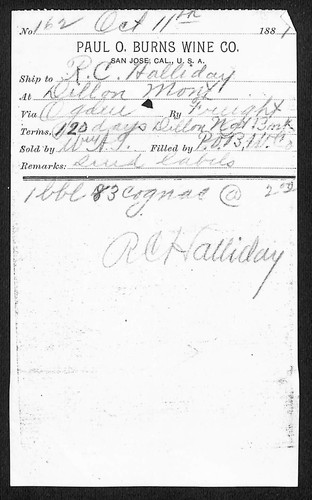 No 162 Oct 11th 188
PAUL O. BURNS WINE CO.
SAN JOSE, CAL., U. S. A.
Ship to R. C. Halliday
At Dillon Mont
Via Ogden By Freight
Terms, 120 days Dillon Nat Bank
Sold by Filled by P.O.B.W.Co
Remarks: Send labels
1 bbl 83 cognac @ 2
R C Halliday